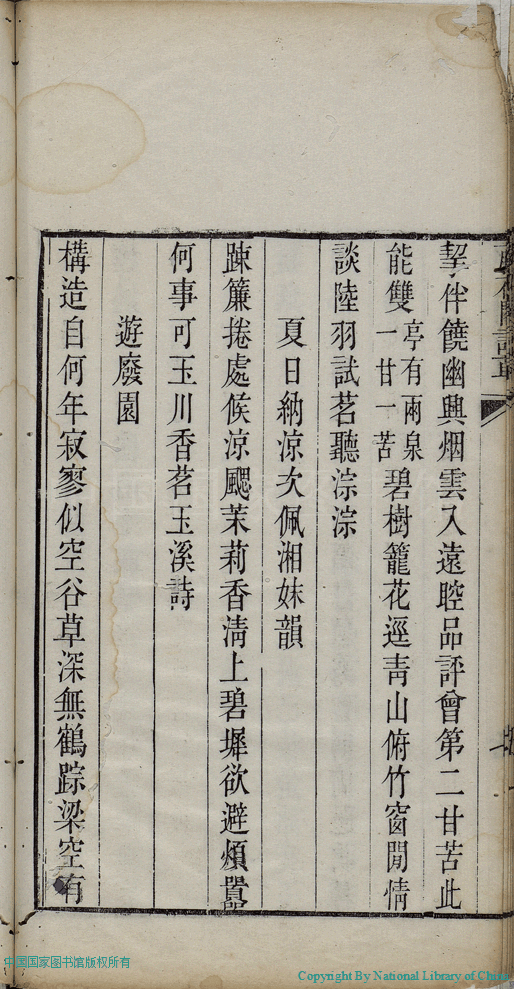 挈伴饒幽興烟雲入遠腔品評曾第二甘苦此
能雙亭有兩泉一甘一苦碧樹籠花逕青山俯竹窗閒情
談陸羽試茗聽淙淙
夏日納涼次佩湘妹韻
疎簾捲處候涼颸茉莉香清上碧墀欲避煩囂
何事可玉川香茗玉溪詩
遊廢園
構造自何年寂寥似空谷草深無鶴踪梁空有
中国国家图书馆版权所有
Copyright By National Library of China